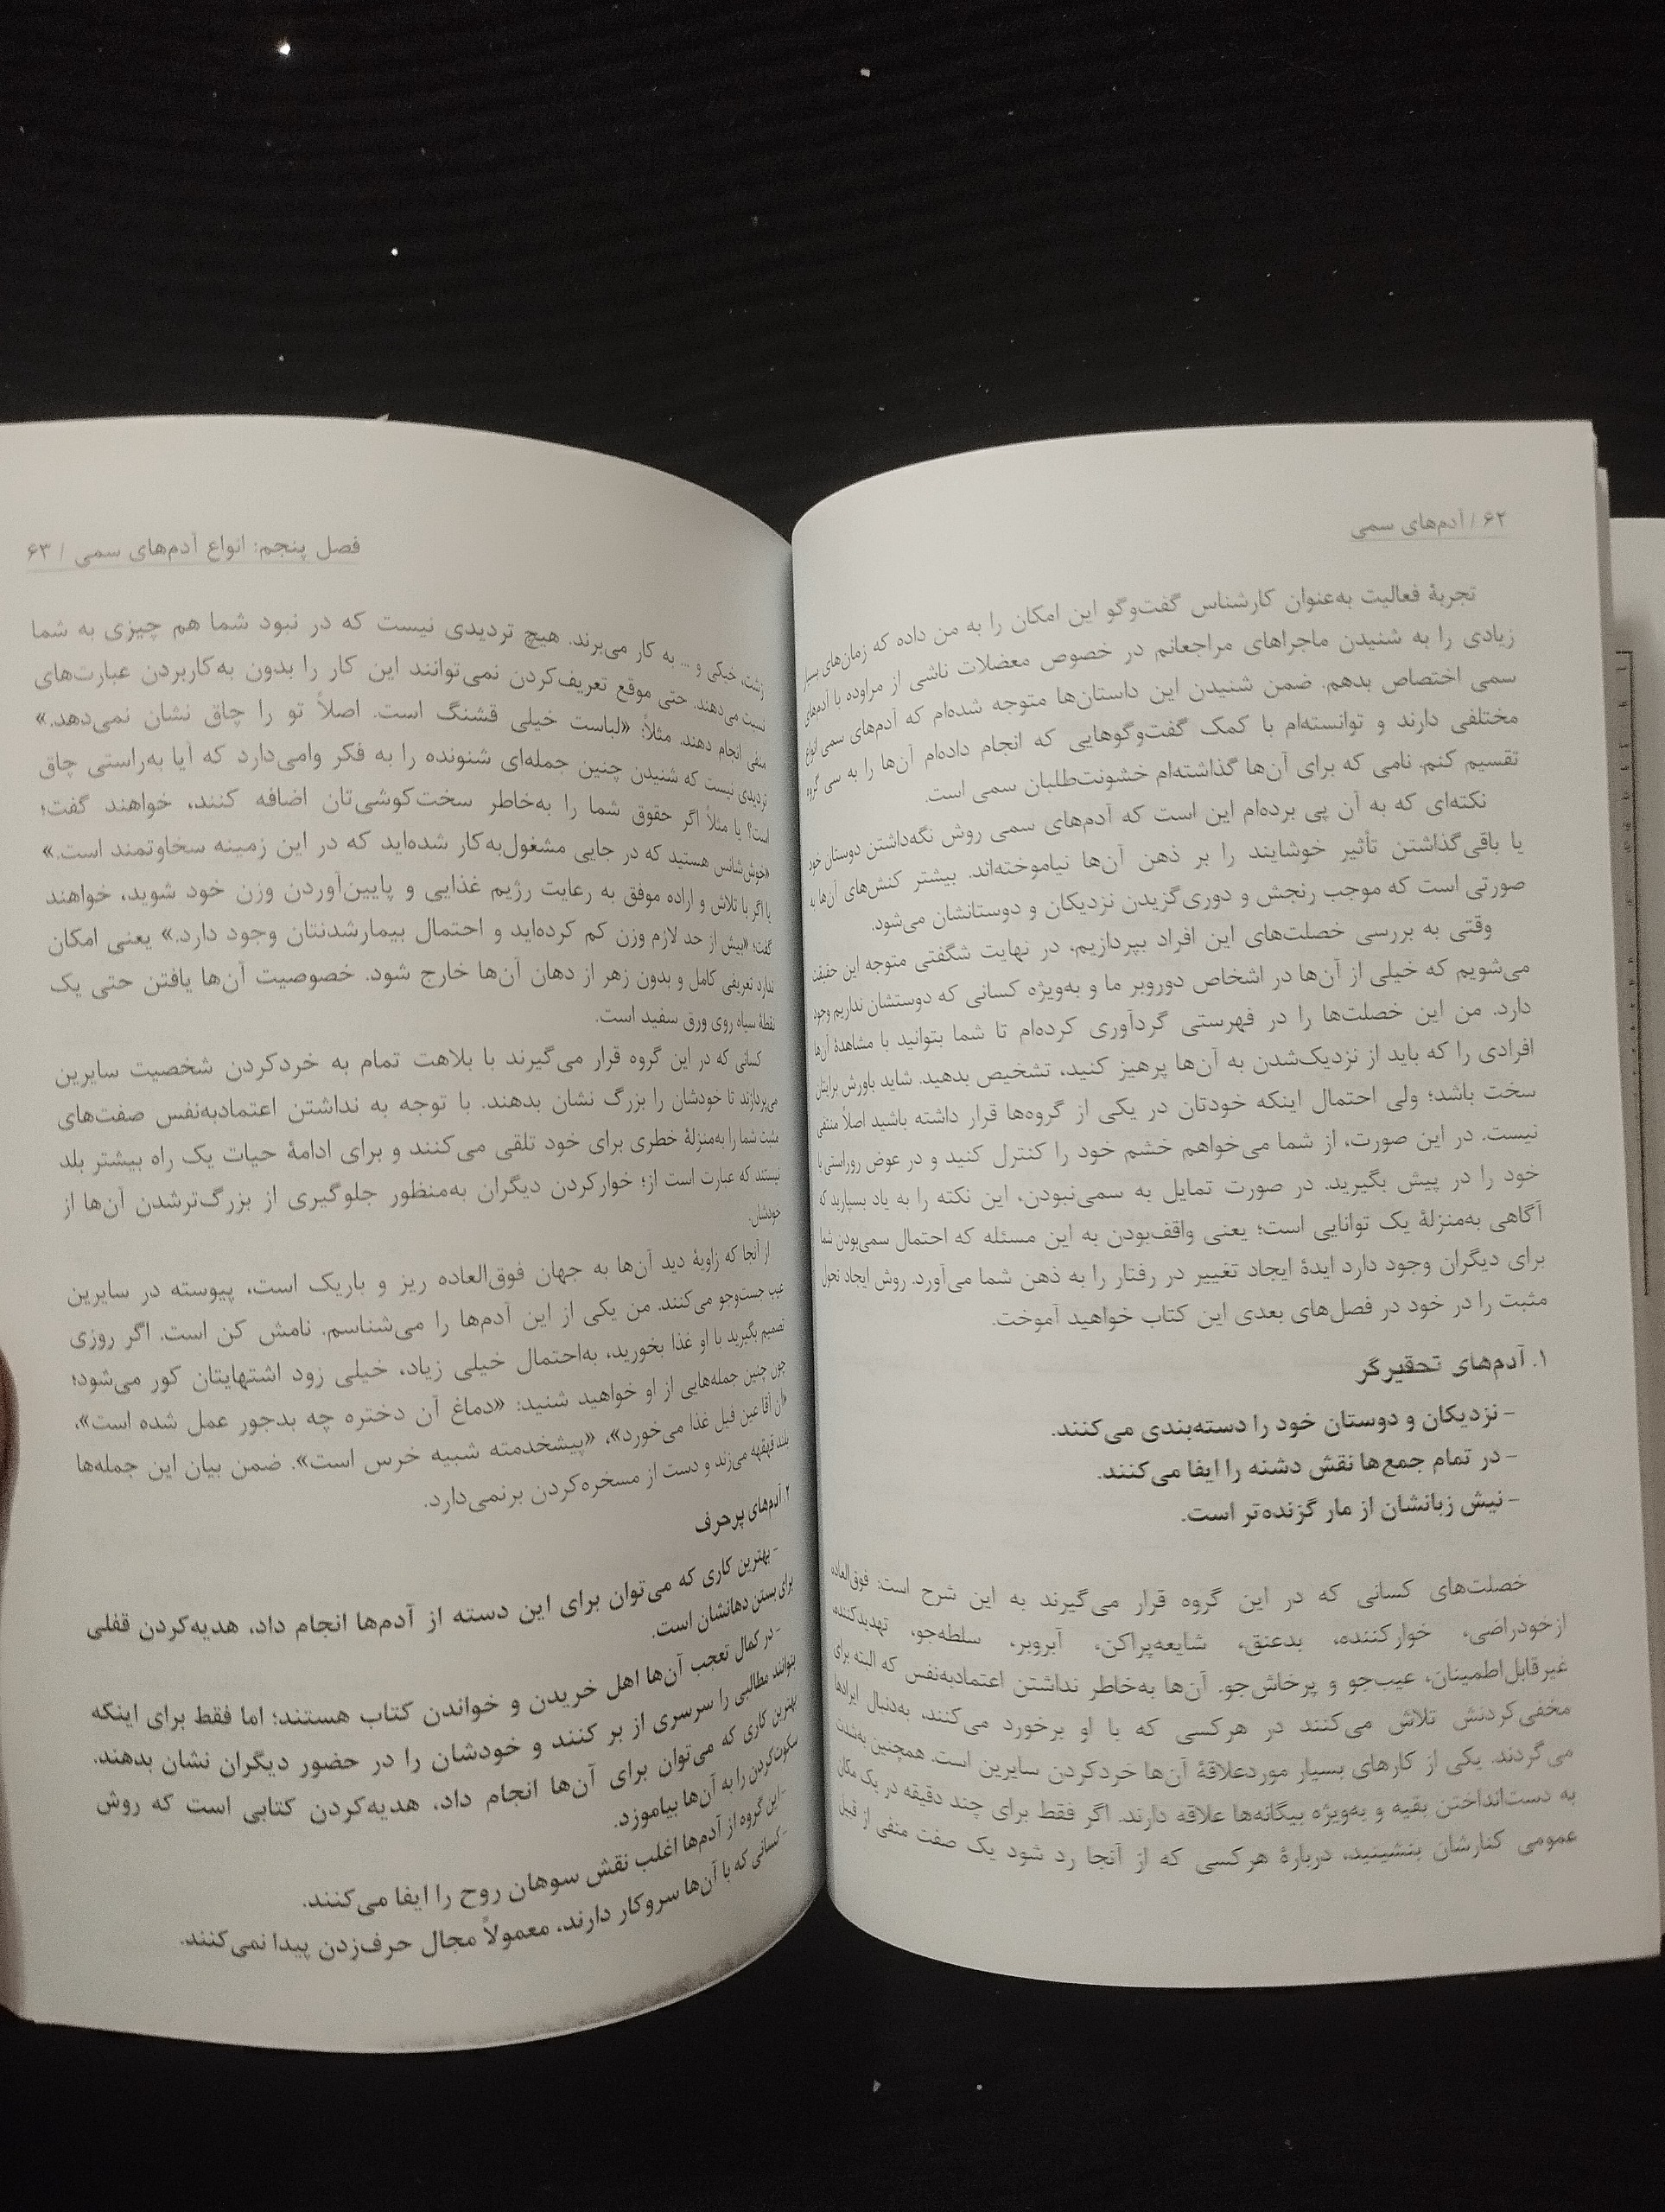 ۶۲ / آدم‌های سمی
تجربهٔ فعالیت به‌عنوان کارشناس گفت‌وگو این امکان را به من داده که زمان‌های بسیار
زیادی را به شنیدن ماجراهای مراجعانم در خصوص معضلات ناشی از مراوده با آدم‌های
سمی اختصاص بدهم. ضمن شنیدن این داستان‌ها متوجه شده‌ام که آدم‌های سمی انواع
مختلفی دارند و توانسته‌ام با کمک گفت‌وگوهایی که انجام داده‌ام آن‌ها را به سی گروه
تقسیم کنم. نامی که برای آن‌ها گذاشته‌ام خشونت‌طلبان سمی است.
نکته‌ای که به آن پی برده‌ام این است که آدم‌های سمی روش نگه‌داشتن دوستان خود
یا باقی‌گذاشتن تأثیر خوشایند را بر ذهن آن‌ها نیاموخته‌اند. بیشتر کنش‌های آن‌ها به
صورتی است که موجب رنجش و دوری‌گزیدن نزدیکان و دوستانشان می‌شود.
وقتی به بررسی خصلت‌های این افراد بپردازیم، در نهایت شگفتی متوجه این حقیقت
می‌شویم که خیلی از آن‌ها در اشخاص دوروبر ما و به‌ویژه کسانی که دوستشان نداریم وجود
دارد. من این خصلت‌ها را در فهرستی گردآوری کرده‌ام تا شما بتوانید با مشاهدهٔ آن‌ها
افرادی را که باید از نزدیک‌شدن به آن‌ها پرهیز کنید، تشخیص بدهید. شاید باورش برایتان
سخت باشد؛ ولی احتمال اینکه خودتان در یکی از گروه‌ها قرار داشته باشید اصلاً منتفی
نیست. در این صورت، از شما می‌خواهم خشم خود را کنترل کنید و در عوض روراستی با
خود را در پیش بگیرید. در صورت تمایل به سمی‌نبودن، این نکته را به یاد بسپارید که
آگاهی به‌منزلهٔ یک توانایی است؛ یعنی واقف‌بودن به این مسئله که احتمال سمی‌بودن شما
برای دیگران وجود دارد ایدهٔ ایجاد تغییر در رفتار را به ذهن شما می‌آورد. روش ایجاد تحول
مثبت را در خود در فصل‌های بعدی این کتاب خواهید آموخت.
۱. آدم‌های تحقیرگر
- نزدیکان و دوستان خود را دسته‌بندی می‌کنند.
- در تمام جمع‌ها نقش دشنه را ایفا می‌کنند.
- نیش زبانشان از مار گزنده‌تر است.
خصلت‌های کسانی که در این گروه قرار می‌گیرند به این شرح است: فوق‌العاده
ازخودراضی، خوارکننده، بدعنق، شایعه‌پراکن، آبروبر، سلطه‌جو، تهدیدکننده،
غیرقابل‌اطمینان، عیب‌جو و پرخاش‌جو. آن‌ها به‌خاطر نداشتن اعتمادبه‌نفس که البته برای
مخفی‌کردنش تلاش می‌کنند در هرکسی که با او برخورد می‌کنند، به‌دنبال ایرادها
می‌گردند. یکی از کارهای بسیار موردعلاقهٔ آن‌ها خردکردن سایرین است. همچنین به‌شدت
به دست‌انداختن بقیه و به‌ویژه بیگانه‌ها علاقه دارند. اگر فقط برای چند دقیقه در یک مکان
عمومی کنارشان بنشینید، دربارهٔ هرکسی که از آنجا رد شود یک صفت منفی از قبیل
فصل پنجم: انواع آدم‌های سمی / ۶۳
زشت، خیکی و ... به کار می‌برند. هیچ تردیدی نیست که در نبود شما هم چیزی به شما
نسبت می‌دهند. حتی موقع تعریف‌کردن نمی‌توانند این کار را بدون به‌کاربردن عبارت‌های
منفی انجام دهند. مثلاً: «لباست خیلی قشنگ است. اصلاً تو را چاق نشان نمی‌دهد.»
تردیدی نیست که شنیدن چنین جمله‌ای شنونده را به فکر وامی‌دارد که آیا به‌راستی چاق
است؟ یا مثلاً اگر حقوق شما را به‌خاطر سخت‌کوشی‌تان اضافه کنند، خواهند گفت:
«خوش‌شانس هستید که در جایی مشغول‌به‌کار شده‌اید که در این زمینه سخاوتمند است.»
یا اگر با تلاش و اراده موفق به رعایت رژیم غذایی و پایین‌آوردن وزن خود شوید، خواهند
گفت: «بیش از حد لازم وزن کم کرده‌اید و احتمال بیمارشدنتان وجود دارد.» یعنی امکان
ندارد تعریفی کامل و بدون زهر از دهان آن‌ها خارج شود. خصوصیت آن‌ها یافتن حتی یک
نقطهٔ سیاه روی ورق سفید است.
کسانی که در این گروه قرار می‌گیرند با بلاهت تمام به خردکردن شخصیت سایرین
می‌پردازند تا خودشان را بزرگ نشان بدهند. با توجه به نداشتن اعتمادبه‌نفس صفت‌های
مثبت شما را به‌منزلهٔ خطری برای خود تلقی می‌کنند و برای ادامهٔ حیات یک راه بیشتر بلد
نیستند که عبارت است از: خوارکردن دیگران به‌منظور جلوگیری از بزرگ‌ترشدن آن‌ها از
خودشان.
از آنجا که زاویهٔ دید آن‌ها به جهان فوق‌العاده ریز و باریک است، پیوسته در سایرین
عیب جست‌وجو می‌کنند. من یکی از این آدم‌ها را می‌شناسم. نامش کن است. اگر روزی
تصمیم بگیرید با او غذا بخورید، به‌احتمال خیلی زیاد، خیلی زود اشتهایتان کور می‌شود؛
چون چنین جمله‌هایی از او خواهید شنید: «دماغ آن دختره چه بدجور عمل شده است»،
«آن آقا عین فیل غذا می‌خورد»، «پیشخدمته شبیه خرس است». ضمن بیان این جمله‌ها
بلند قهقهه می‌زند و دست از مسخره‌کردن برنمی‌دارد.
۲. آدم‌های پرحرف
- بهترین کاری که می‌توان برای این دسته از آدم‌ها انجام داد، هدیه‌کردن قفلی
برای بستن دهانشان است.
- در کمال تعجب آن‌ها اهل خریدن و خواندن کتاب هستند؛ اما فقط برای اینکه
بتوانند مطالبی را سرسری از بر کنند و خودشان را در حضور دیگران نشان بدهند.
بهترین کاری که می‌توان برای آن‌ها انجام داد، هدیه‌کردن کتابی است که روش
سکوت‌کردن را به آن‌ها بیاموزد.
- این گروه از آدم‌ها اغلب نقش سوهان روح را ایفا می‌کنند.
- کسانی که با آن‌ها سروکار دارند، معمولاً مجال حرف‌زدن پیدا نمی‌کنند.